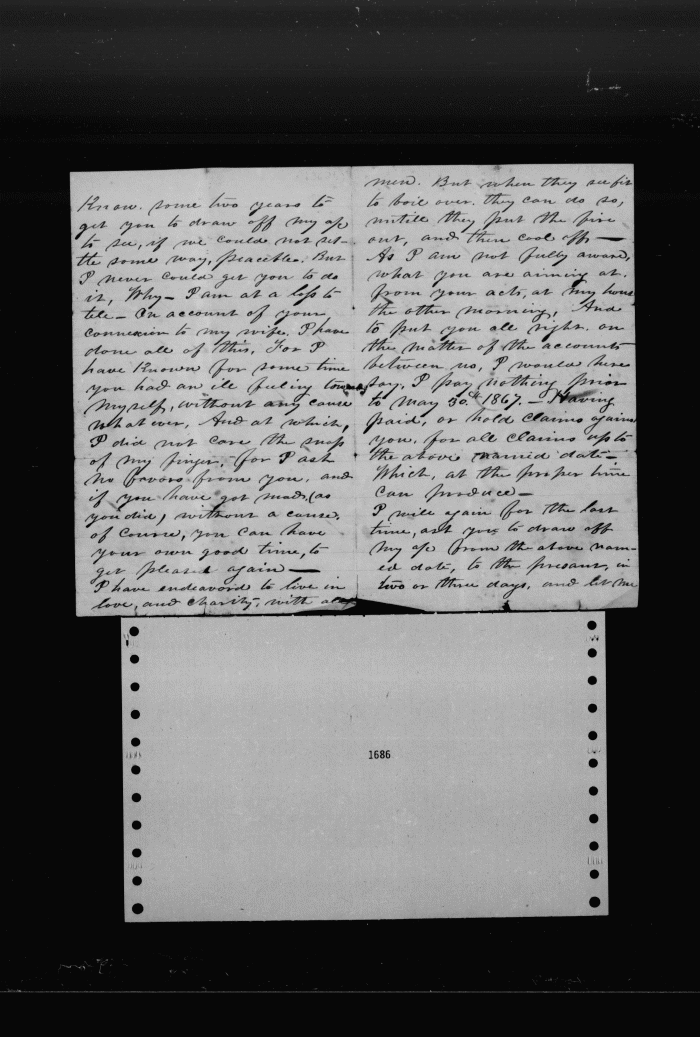 Know. some two years to
get you to draw off my a/c
to see, if we could not set-
tle some way, peacible. But
I never could get you to do
it, Why— I am at a loss to
tell— On account of your
connexion to my wife. I have
done all of this, For I
have Known for some time
you had an ill feeling towards
myself, without any cause
what ever, And at which,
I did not care the snap
of my finger, for I ask
no favors from you, and
if you have got mad, (as
you did, without a cause.
of course, you can have
your own good time, to
get pleased again —
I have endeavord to live in
love, and charity, with all
men. But when they see fit
to boil over. they can do so,
untill they put the fire
out, and then cool off —
As I am not fully aware,
what you are aiming at.
from your acts, at my house
the other morning, And
to put you all right. on
the matter of the accounts
between us, I would here
say, I pay nothing prior
to May 30th 1867. — Having
paid, or hold claims against
you. for all claims up to
the above named date—
Which, at the proper time
can produce —
I will again for the last
time, ask you to draw off
my a/c from the above nam-
ed date, to the present, in
two or three days, and let me
1686